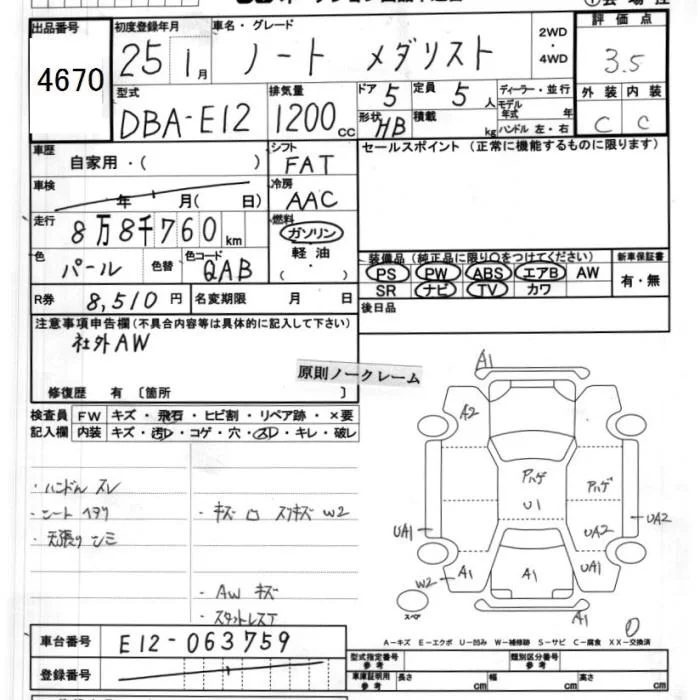 出品番号
4670
初度登録年月
25 1月
車名・グレード
ノート メダリスト
2WD
・
4WD
評価点
3.5
型式
DBA-E12
排気量
1200cc
ドア
5
定員
5人
形状
HB
積載
kg
ディーラー・並行
モデル年式 年
ハンドル 左・右
外装 内装
C C
車歴
自家用・( )
シフト
FAT
セールスポイント (正常に機能するものに限ります)
車検
年 月( 日)
冷房
AAC
走行
8万8千760km
燃料
ガソリン
軽油
( ・ )
色
パール
色替
色コード
QAB
装備品 (純正品に限り○をつけてください)
PS PW ABS エアB AW
SR ナビ TV カワ
新車保証書
有・無
R券
8,510円
名変期限 月 日
後日品
注意事項申告欄(不具合内容等は具体的に記入して下さい)
社外AW
原則ノークレーム
修復歴 有〔箇所 〕
検査員
記入欄
FW キズ・飛石・ヒビ割・リペア跡・×要
内装 キズ・汚レ・コゲ・穴・スレ・キレ・破レ
・ハンドルスレ
・シートヘタリ
・天張リシミ
・キズ ロ スリキズ W2
・AW キズ
・スタットレスT
A1
A2
Pハゲ
U1
Pハゲ
UA1
UA2
UA2
W2
A1
A1
UA1
A1
スペア
A-キズ E-エクボ U-凹み W-補修跡 S-サビ C-腐食 XX-交換済
車台番号
E12-063759
登録番号
型式指定番号
参考
類別区分番号
参考
車庫証明用
参考
長さ cm
幅 cm
高さ cm